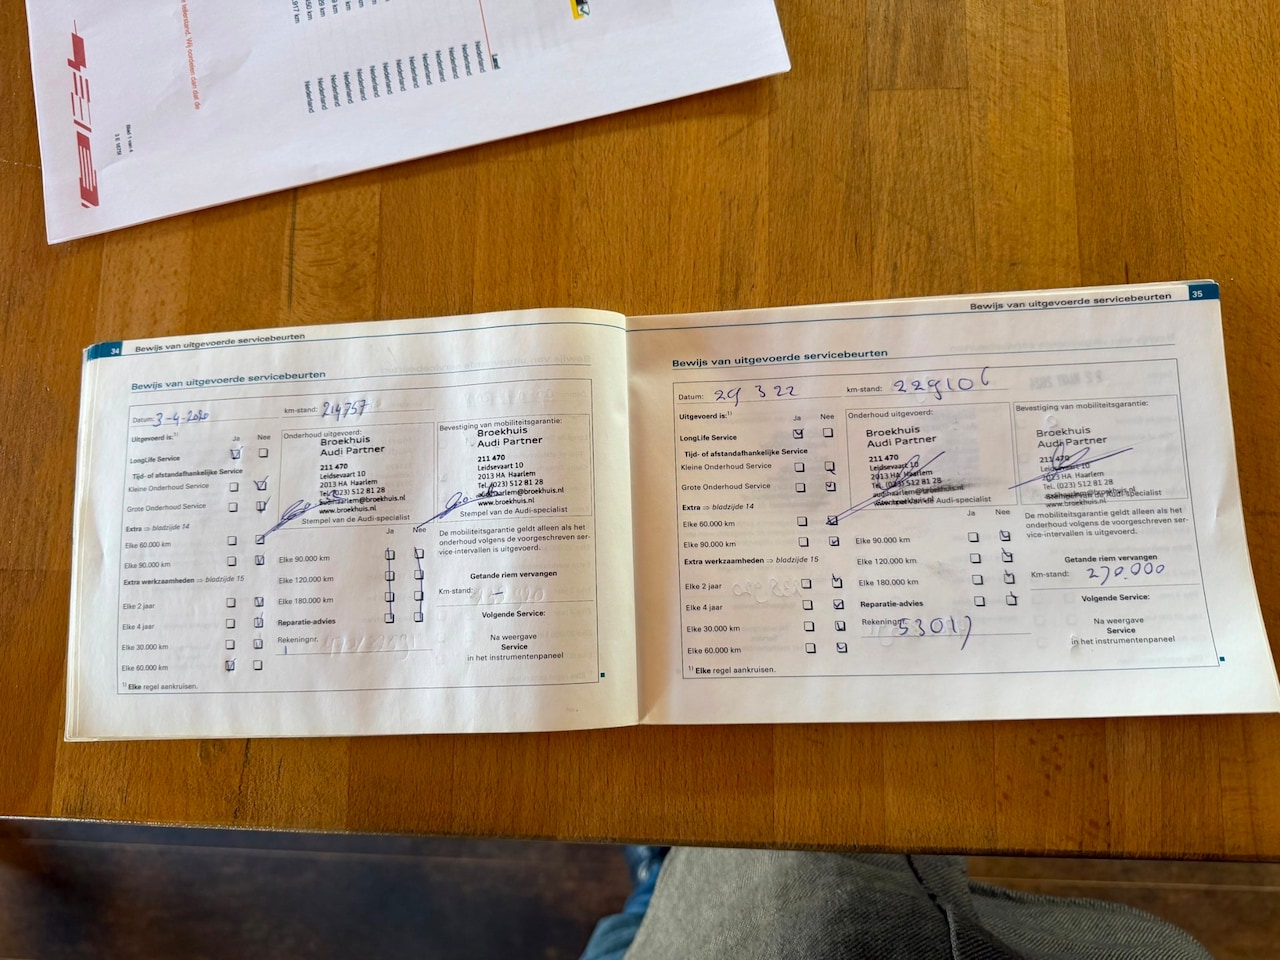 Land
Nederland
Nederland
Nederland
Nederland
Nederland
Nederland
Nederland
Nederland
Nederland
Nederland
Nederland
Nederland
Nederland
Nederland
34 Bewijs van uitgevoerde servicebeurten
Bewijs van uitgevoerde servicebeurten
Datum: 3-4-2020 km-stand: 214757
Uitgevoerd is:¹⁾ Ja Nee
LongLife Service
Tijd- of afstandafhankelijke Service
Kleine Onderhoud Service
Grote Onderhoud Service
Extra ⇒ bladzijde 14
Elke 60.000 km
Elke 90.000 km
Extra werkzaamheden ⇒ bladzijde 15
Elke 2 jaar
Elke 4 jaar
Elke 30.000 km
Elke 60.000 km
¹⁾ Elke regel aankruisen.
Onderhoud uitgevoerd:
Broekhuis
Audi Partner
211 470
Leidsevaart 10
2013 HA Haarlem
Tel. (023) 512 81 28
www.broekhuis.nl
Stempel van de Audi-specialist
Ja Nee
Elke 90.000 km
Elke 120.000 km
Elke 180.000 km
Reparatie-advies
Rekeningnr.
Bevestiging van mobiliteitsgarantie:
Broekhuis
Audi Partner
211 470
Leidsevaart 10
2013 HA Haarlem
Tel. (023) 512 81 28
www.broekhuis.nl
Stempel van de Audi-specialist
De mobiliteitsgarantie geldt alleen als het
onderhoud volgens de voorgeschreven ser-
vice-intervallen is uitgevoerd.
Getande riem vervangen
Km-stand: -
Volgende Service:
Na weergave
Service
in het instrumentenpaneel
Bewijs van uitgevoerde servicebeurten 35
Bewijs van uitgevoerde servicebeurten
Datum: 29 3 22 km-stand: 229106
Uitgevoerd is:¹⁾ Ja Nee
LongLife Service
Tijd- of afstandafhankelijke Service
Kleine Onderhoud Service
Grote Onderhoud Service
Extra ⇒ bladzijde 14
Elke 60.000 km
Elke 90.000 km
Extra werkzaamheden ⇒ bladzijde 15
Elke 2 jaar
Elke 4 jaar
Elke 30.000 km
Elke 60.000 km
¹⁾ Elke regel aankruisen.
Onderhoud uitgevoerd:
Broekhuis
Audi Partner
211 470
Leidsevaart 10
2013 HA Haarlem
Tel. (023) 512 81 28
Stempel van de Audi-specialist
Ja Nee
Elke 90.000 km
Elke 120.000 km
Elke 180.000 km
Reparatie-advies
Rekeningnr. 53017
Bevestiging van mobiliteitsgarantie:
Broekhuis
Audi Partner
211 470
Leidsevaart 10
2013 HA Haarlem
Tel. (023) 512 81 28
Stempel van de Audi-specialist
De mobiliteitsgarantie geldt alleen als het
onderhoud volgens de voorgeschreven ser-
vice-intervallen is uitgevoerd.
Getande riem vervangen
Km-stand: 270.000
Volgende Service:
Na weergave
Service
in het instrumentenpaneel